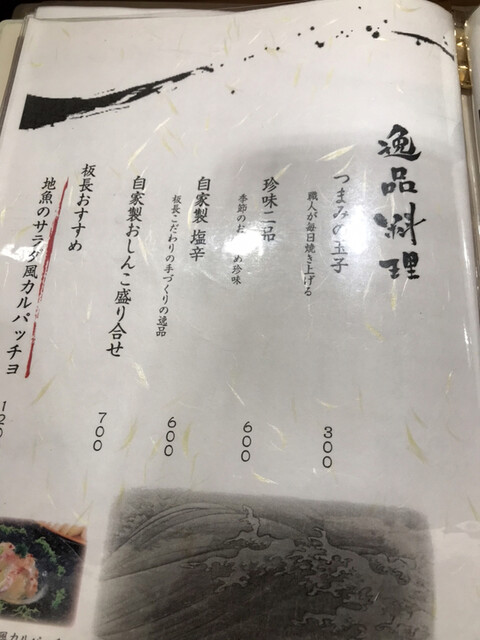 逸品料理
つまみの玉子
職人が毎日焼き上げる
300
珍味二品
季節のお め珍味
600
自家製 塩辛
板長こだわりの手づくりの逸品
600
自家製おしんこ盛り合せ
700
板長おすすめ
地魚のサラダ風カルパッチョ
120
風カルパッチ